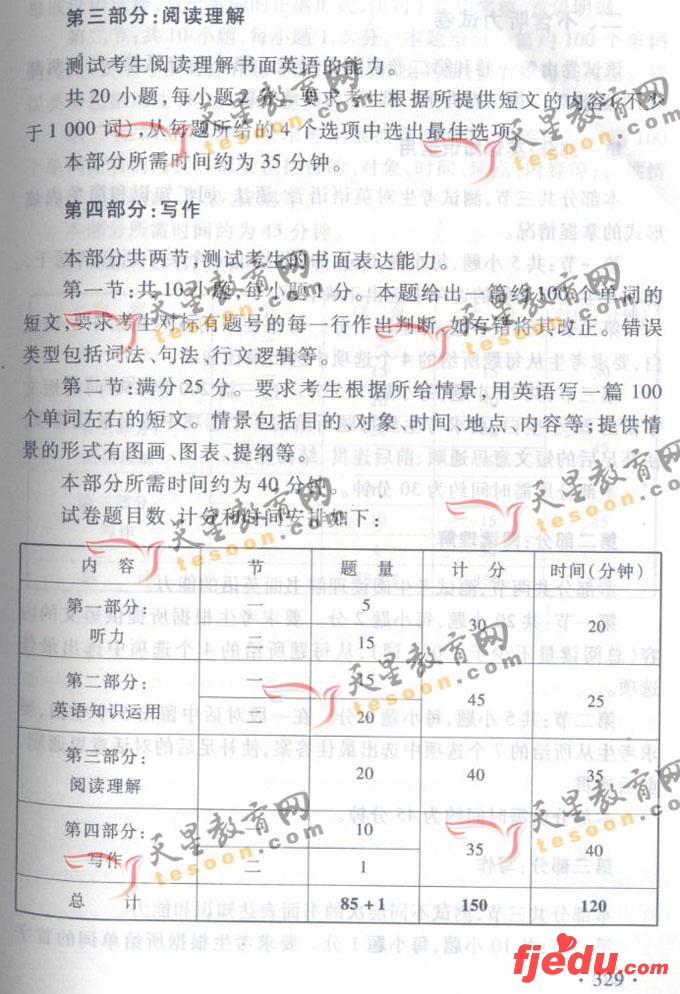 第三部分:阅读理解
测试考生阅读理解书面英语的能力。
共20小题,每小题2分。要求考生根据所提供短文的内容(不少
于1 000词),从每题所给的4个选项中选出最佳选项。
本部分所需时间约为35分钟。
第四部分:写作
本部分共两节,测试考生的书面表达能力。
第一节:共10小题,每小题1分。本题给出一篇约100个单词的
短文,要求考生对标有题号的每一行作出判断,如有错将其改正。错误
类型包括词法、句法,行文逻辑等。
第二节:满分25分。要求考生根据所给情景,用英语写一篇100
个单词左右的短文。情景包括目的、对象、时间、地点、内容等;提供情
景的形式有图画、图表、提纲等。
本部分所需时间约为40分钟。
试卷题目数、计分和时间安排如下:
内 容 节 题 量 计 分 时间(分钟)
第一部分:
听力 一 5 30 20
二 15
第二部分:
英语知识运用 一 15 45 25
二 20
第三部分:
阅读理解 20 40 35
第四部分:
写作 一 10 35 40
二 1
总 计 85+1 150 120
天星教育网
tesoon.com
天星教育网
tesoon.com
天星教育网
tesoon.com
天星教育网
tesoon.com
天星教育网
tesoon.com
天星教育网
tesoon.com
天星教育网
tesoon.com
天星教育网
tesoon.com
天星教育网
tesoon.com
fjedu.com
·329·